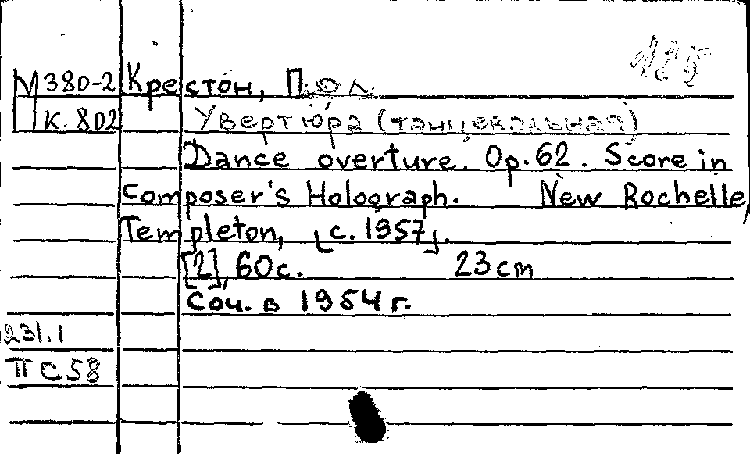 М 380-2 Крестон, Пол
К. 802 Увертюра (танцевальная)
Dance overture. Op. 62. Score in
composer's Holograph. New Rochelle,
Templeton, [c. 1957].
[2], 60 с. 23 cm
Соч. в 1954 г.
231.1
ПС58